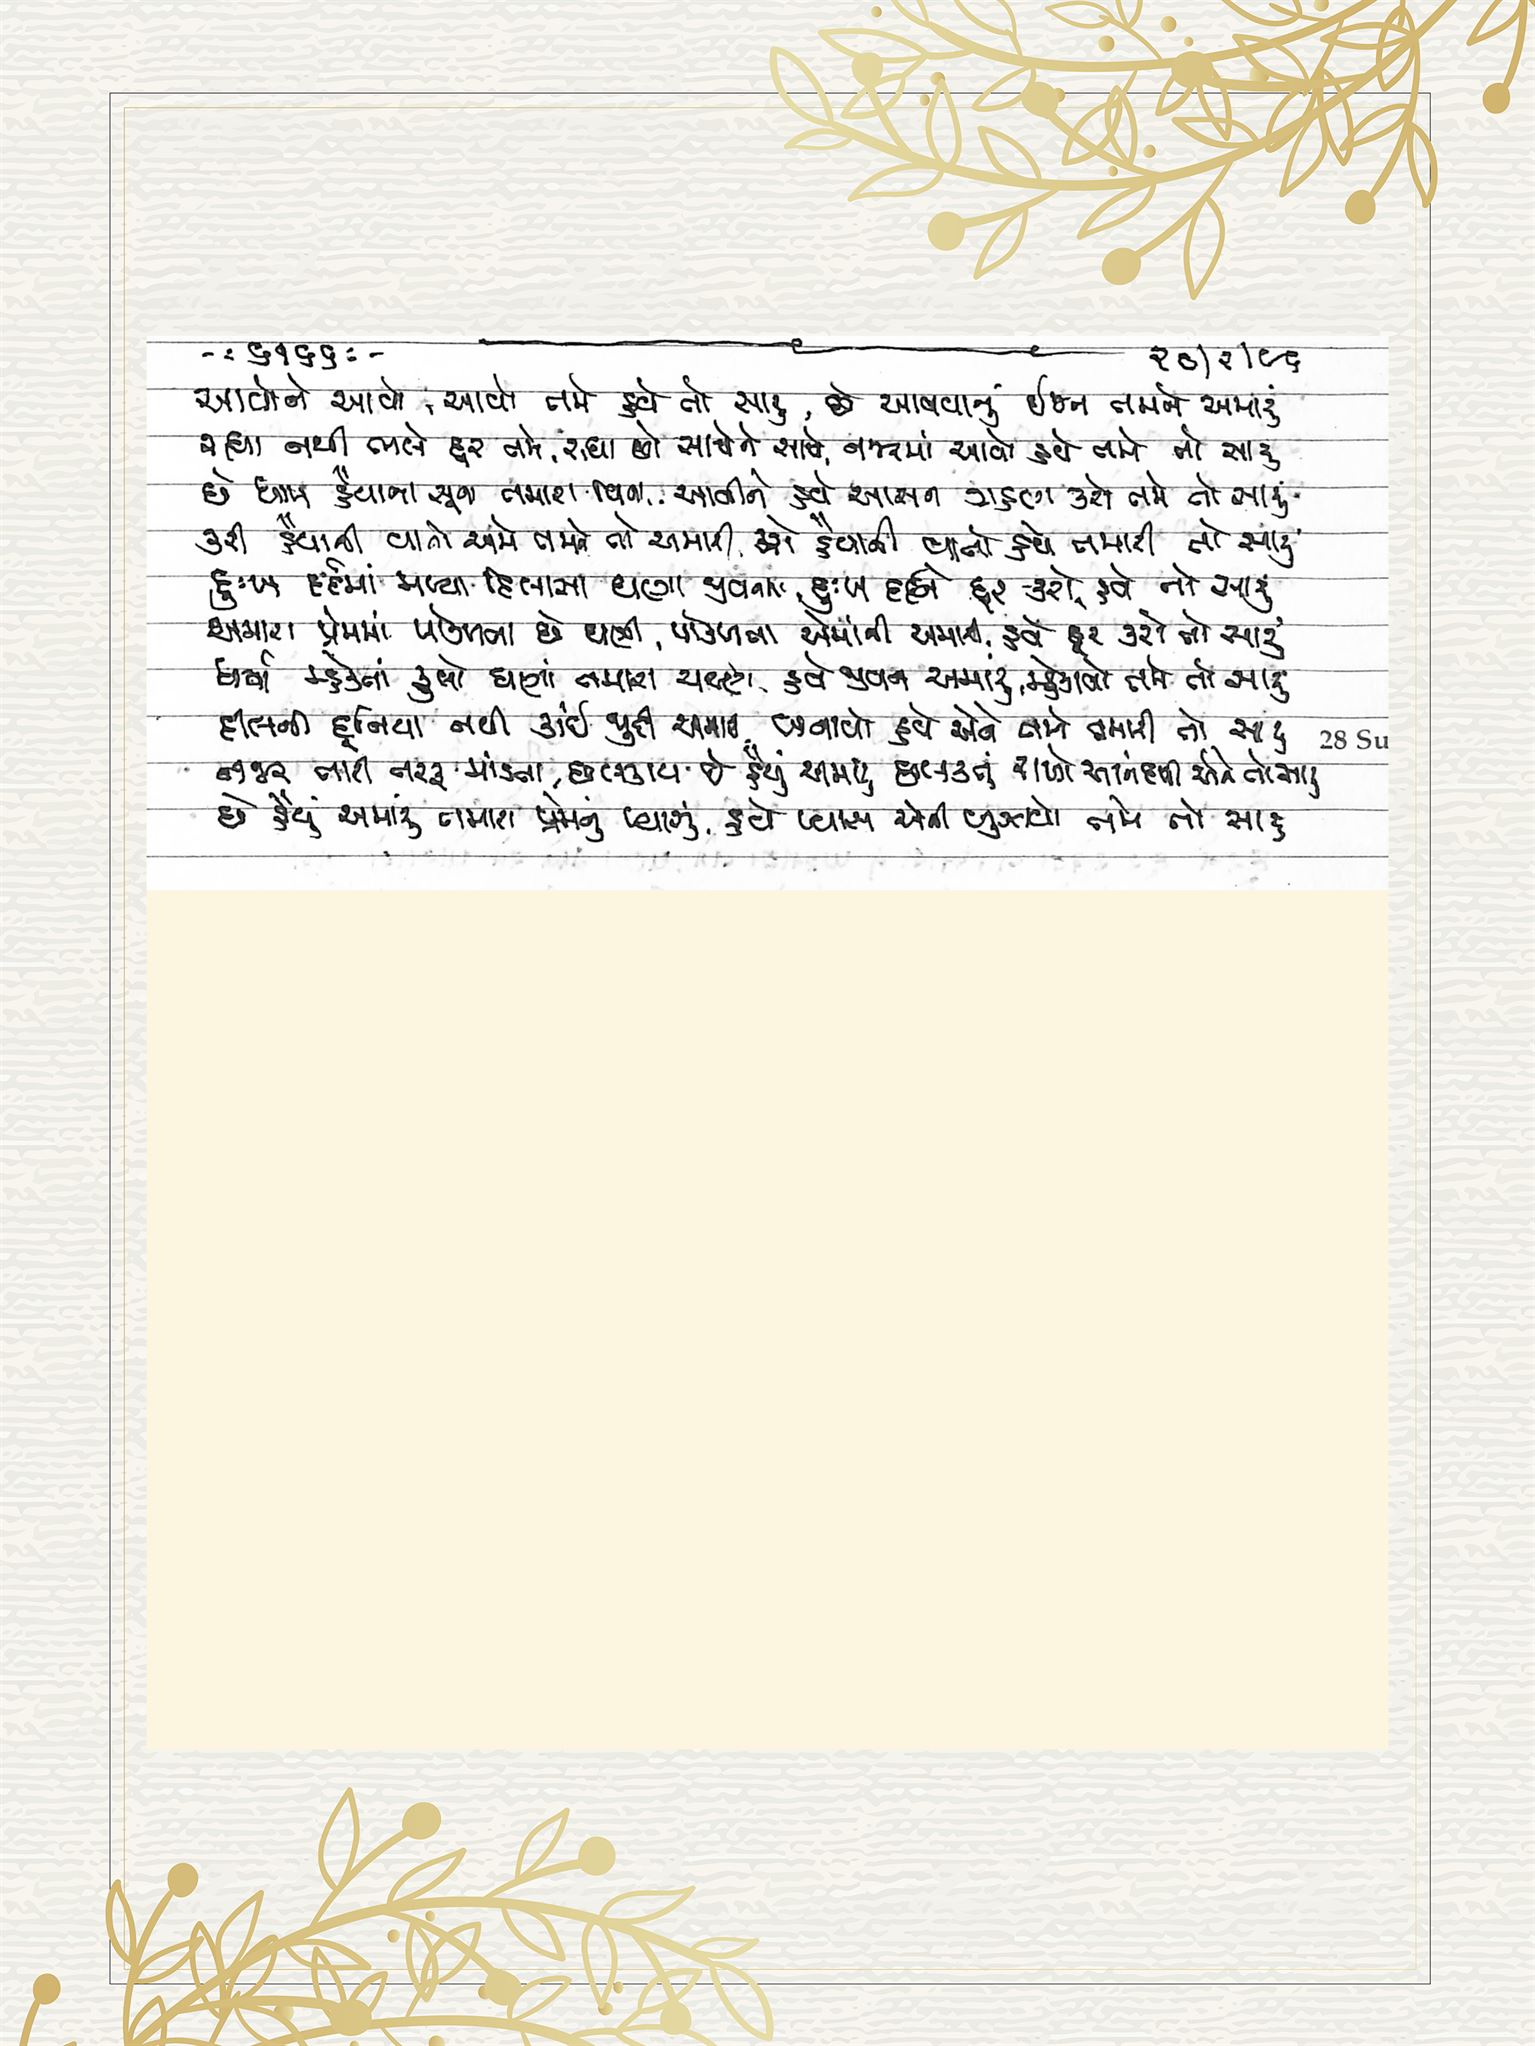 -: ૬૧૬૬ :- ૨૭/૨/૯૬
આવોને આવો, આવો તમે હવે તો સારું, છે આવવાનું ઈજન તમને અમારું
રહ્યા નથી ભલે દૂર તમે, રહ્યા છો સાથેને સાથે, નજરમાં આવો હવે તમે તો સારું
છે ધામ હૈયાના સૂના તમારા વિના, આવીને હવે આસન ગ્રહણ કરો તમે તો સારું
કરી હૈયાની વાતો અમે તમને તો અમારી, કરો હૈયાની વાતો હવે તમારી તો સારું
દુઃખ દર્દમાં મળ્યા દિલાસા ઘણા જીવનમાં, દુઃખ દર્દને દૂર કરો હવે તો સારું
અમારા પ્રેમમાં પોકળતા છે ઘણી, પોકળતા એમાંની અમારી, હવે દૂર કરો તો સારું
ધર્યા મહેકતાં ફૂલો ઘણાં તમારા ચરણે, હવે જીવન અમારું, મહેકાવો તમે તો સારું
દીલની દૂનિયા નથી કાંઈ જુદી અમારી, બનાવો હવે એને તમે તમારી તો સારું
28 Su
નજર તારી તરફ માંડતા, છલકાય છે હૈયું અમારું છલકતું રાખો આનંદથી એને તો સારું
છે હૈયું અમારું તમારા પ્રેમનું પ્યાસું, હવે પ્યાસ એની બુઝાવો તમે તો સારું